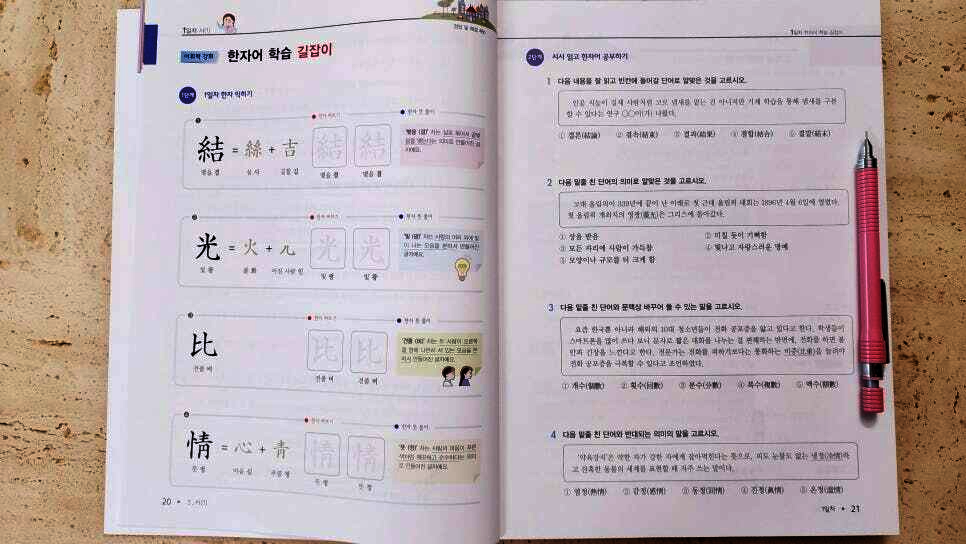 1일차 시작
어휘력 강화 한자어 학습 길잡이
1단계 1일차 한자 익히기
1
한자 써보기 한자 뜻 풀이
結 = 絲 + 吉 結 結
맺을 결 실 사 길할 길 맺을 결 맺을 결
2
한자 써보기 한자 뜻 풀이
光 = 火 + 儿 光 光
빛 광 불 화 어진 사람 인 빛 광 빛 광
3
한자 써보기 한자 뜻 풀이
比 比 比
견줄 비 견줄 비 견줄 비
4
한자 써보기 한자 뜻 풀이
情 = 心 + 靑 情 情
뜻 정 마음 심 푸를 청 뜻 정 뜻 정
20
1일차 한자어 학습 길잡이
2단계 시사 읽고 한자어 공부하기
1 다음 내용을 잘 읽고 빈칸에 들어갈 단어로 알맞은 것을 고르시오.
인공 식능이 실제 사람처럼 코로 냄새를 맡는 건 아니지만 기계 학습을 통해 냄새를 구분
할 수 있다는 연구 ○○이(가) 나왔다.
① 결론(結論) ② 결속(結束) ③ 결과(結果) ④ 결합(結合) ⑤ 결말(結末)
2 다음 밑줄 친 단어의 의미로 알맞은 것을 고르시오.
고대 올림픽이 339년에 끝이 난 이래로 첫 근대 올림픽 대회는 1896년 4월 6일에 열렸다.
첫 올림픽 개최지의 영광(榮光)은 그리스에 돌아갔다.
① 상을 받음 ② 미칠 듯이 기뻐함
③ 모든 자리에 사람이 가득참 ④ 빛나고 자랑스러운 명예
⑤ 모양이나 규모를 더 크게 함
3 다음 밑줄 친 단어와 문맥상 바꾸어 쓸 수 있는 말을 고르시오.
요즘 한국뿐 아니라 해외의 10대 청소년들이 전화 공포증을 앓고 있다고 한다. 학생들이
스마트폰을 많이 쓰다 보니 문자로 짧은 대화를 나누는 걸 편해하는 반면에, 전화를 하면 불
안과 긴장을 느낀다고 한다. 전문가는 전화를 피하기보다는 통화하는 비중(比重)을 늘려야
전화 공포증을 극복할 수 있다고 조언하였다.
① 개수(個數) ② 횟수(回數) ③ 분수(分數) ④ 복수(複數) ⑤ 액수(額數)
4 다음 밑줄 친 단어와 반대되는 의미의 말을 고르시오.
'약육강식'은 약한 자가 강한 자에게 잡아먹힌다는 뜻으로, 피도 눈물도 없는 냉정(冷情)하
고 잔혹한 동물의 세계를 표현할 때 자주 쓰는 말이다.
① 열정(熱情) ② 감정(感情) ③ 동정(同情) ④ 진정(眞情) ⑤ 온정(溫情)
1일차 • 21